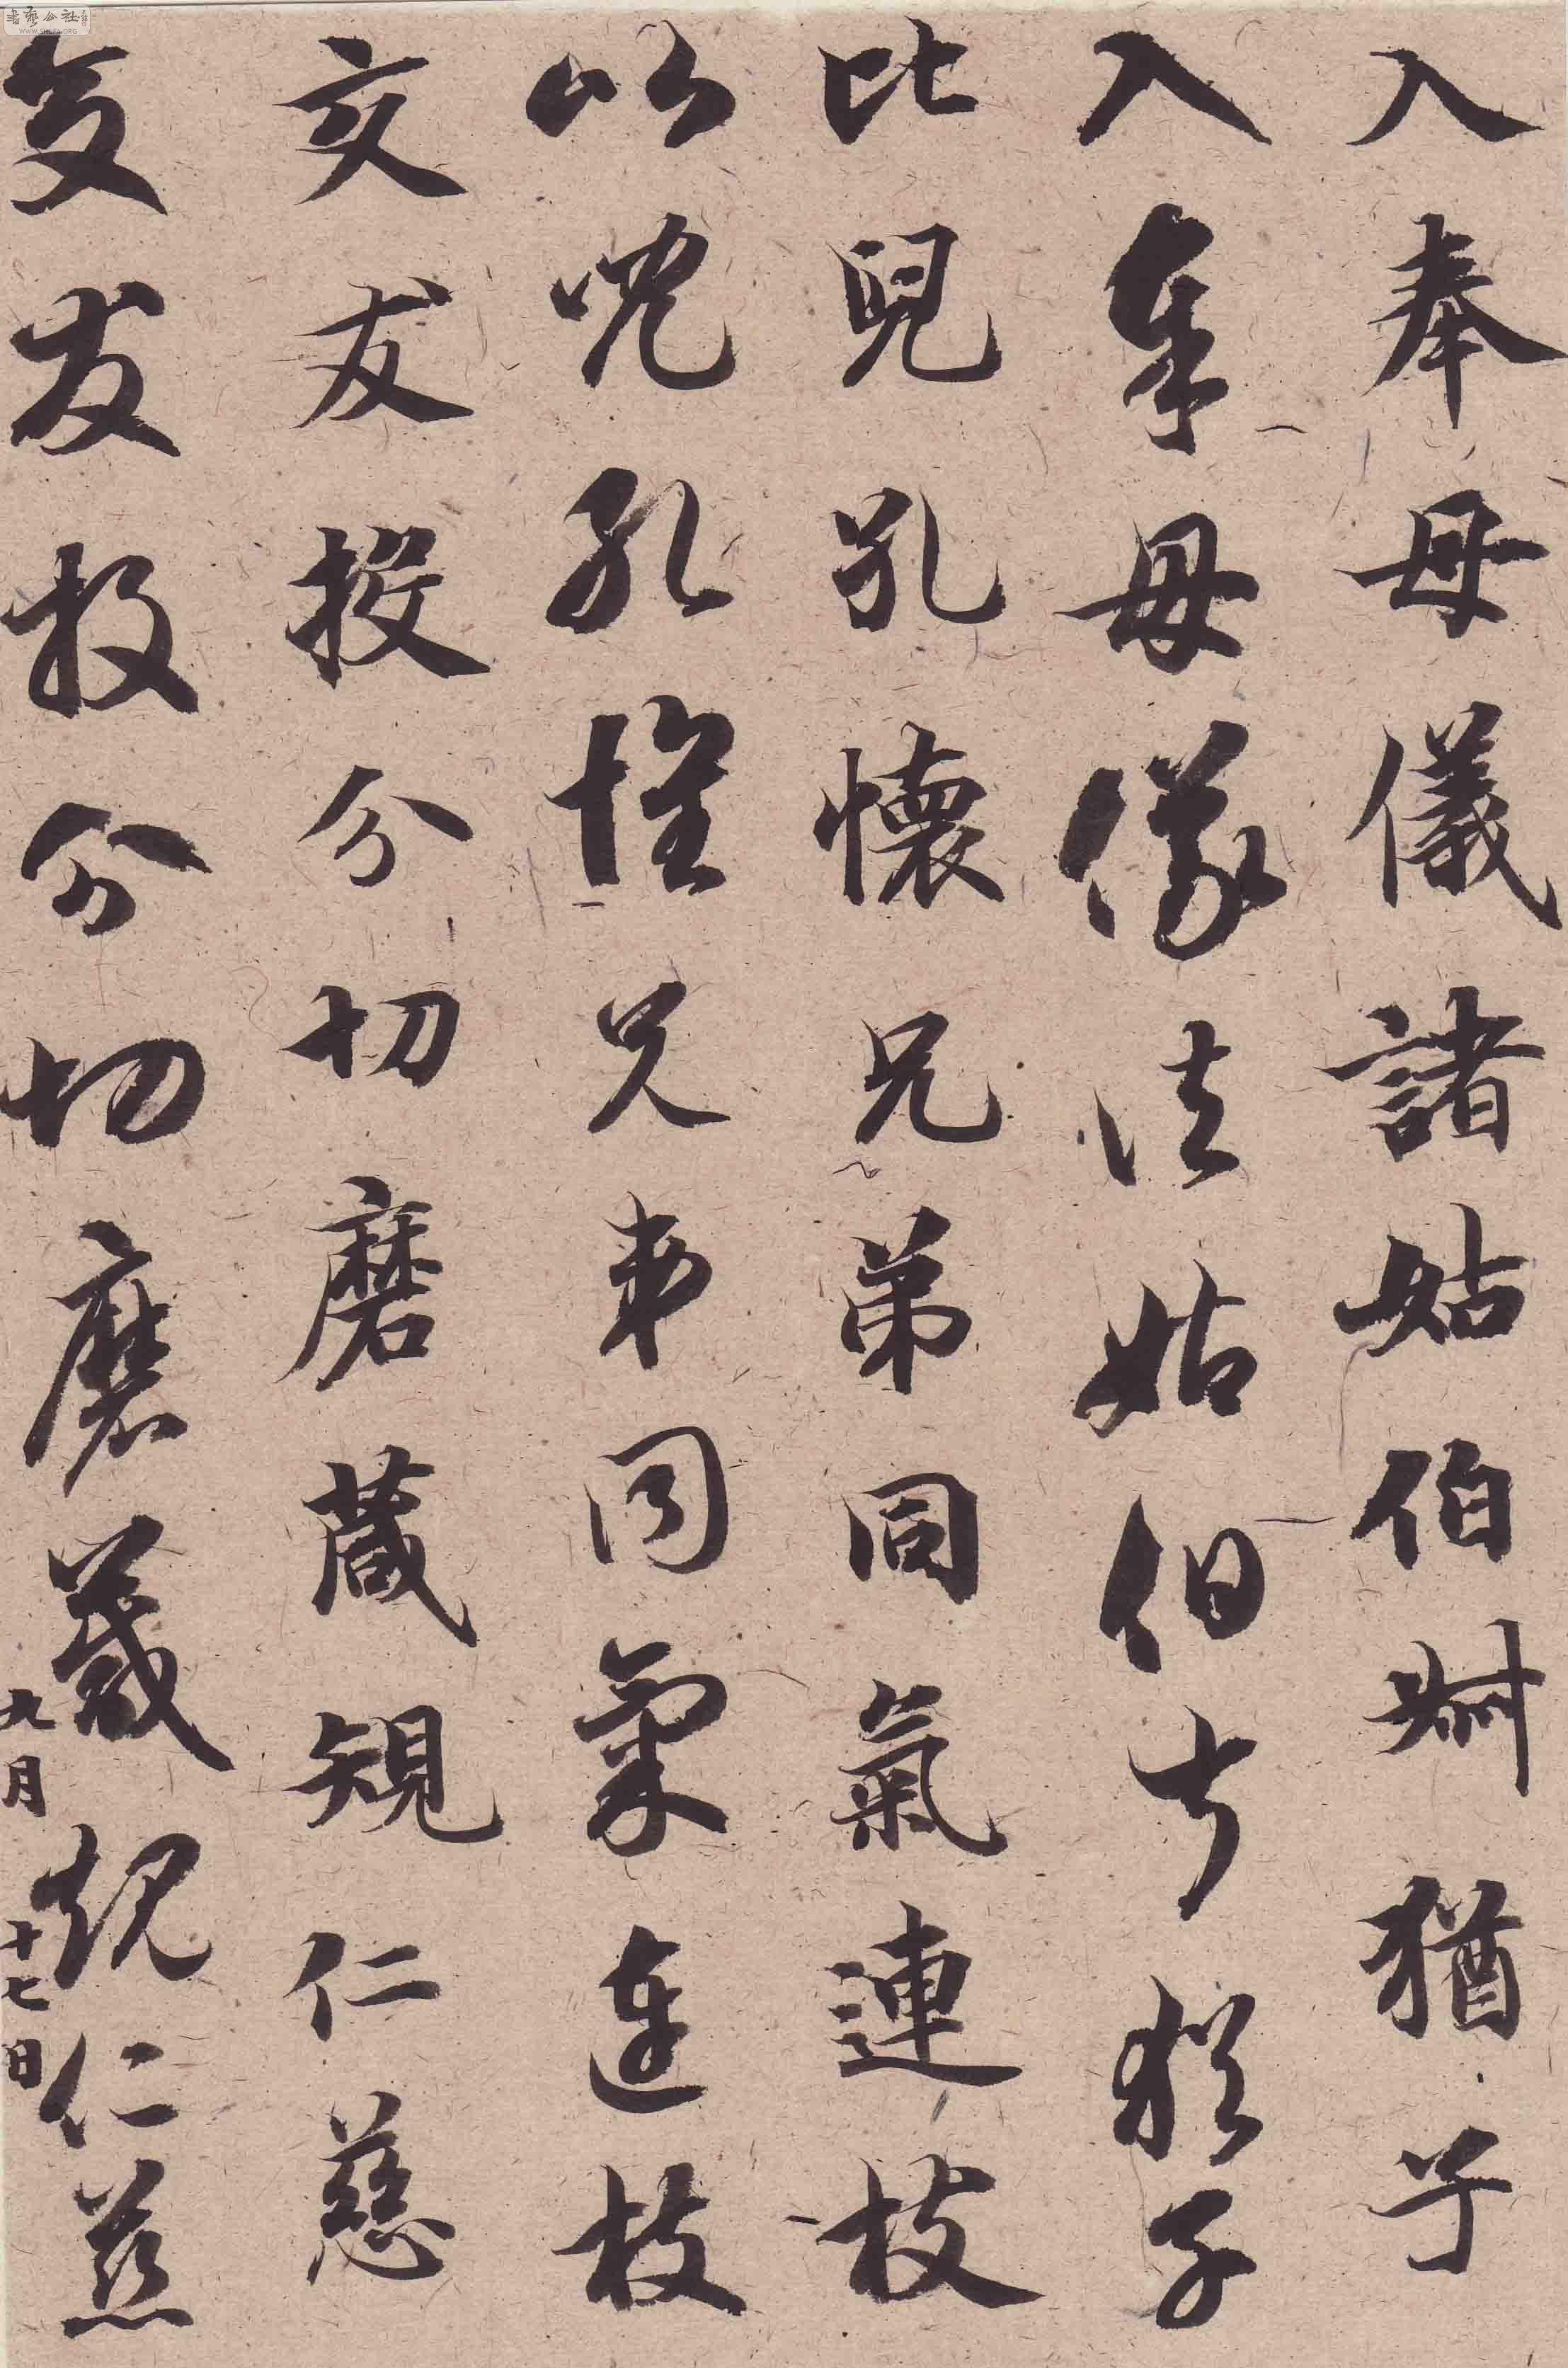 入奉母儀諸姑伯叔猶子
入奉母儀諸姑伯叔猶子
比兒孔懷兄弟同氣連枝
比兒孔懷兄弟同氣連枝
交友投分切磨葴規仁慈
交友投分切磨葴規仁慈
九月十七日